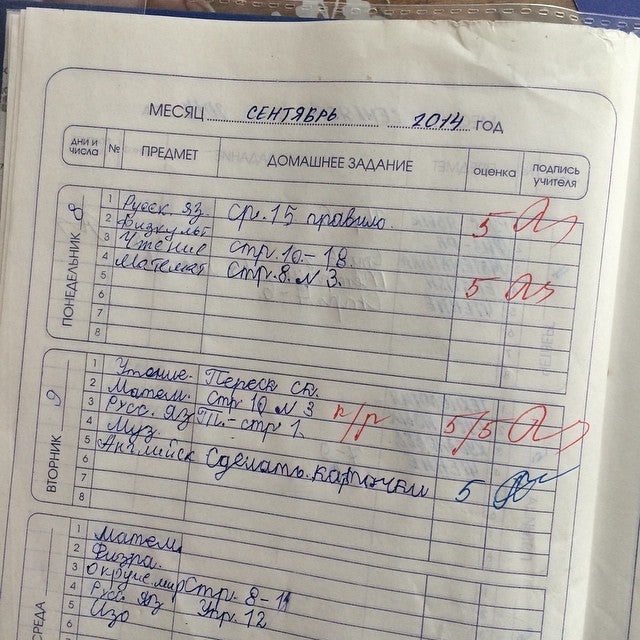 МЕСЯЦ СЕНТЯБРЬ 2014 ГОД
ДНИ И ЧИСЛА № ПРЕДМЕТ ДОМАШНЕЕ ЗАДАНИЕ оценка подпись учителя
ПОНЕДЕЛЬНИК 8
1 Русск. яз. Стр. 15 правило. 5
2 Физкульт
3 Чтение стр. 10.-18.
4 Математ Стр. 8. N 3. 5
5
6
7
8
ВТОРНИК 9
1 Чтение. Переск ск.
2 Матем. Стр 10 N 3
3 Русс. яз Т.-стр 1. к/р 5/5
4 Муз.
5 Английск Сделать карточки 5
6
7
8
СРЕДА
1 Матем.
2 Физра.
3 Окруж мир Стр. 8-11
4 Русс. яз Упр. 12
5 Изо